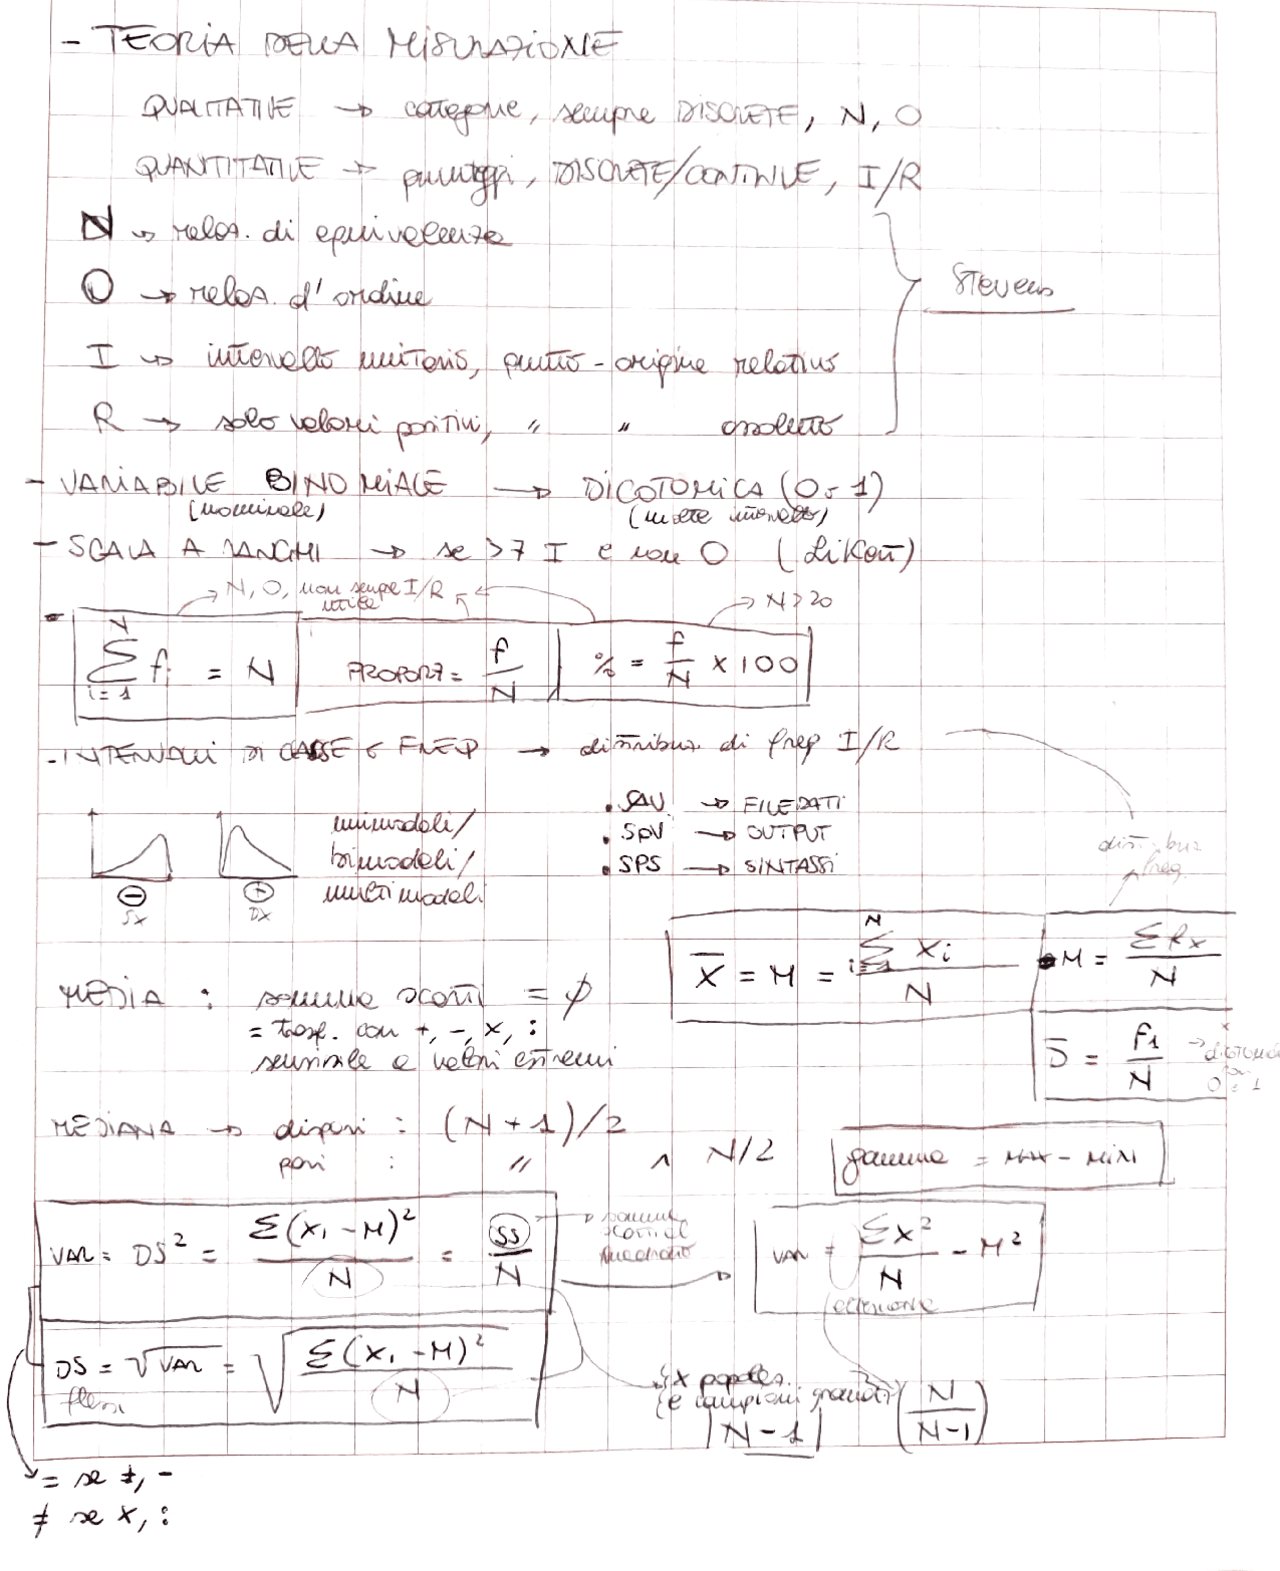 - TEORIA DELLA MISURAZIONE
QUALITATIVE → categorie, sempre DISCRETE, N, O
QUANTITATIVE → punteggi, DISCRETE/CONTINUE, I/R
N → relaz. di equivalenza
O → relaz. d'ordine
I → intervallo unitario, punto-origine relativo
R → solo valori positivi, " " assoluto
Stevens
- VARIABILE BINOMIALE → DICOTOMICA (0-1)
(nominale) (molte intervallo)
- SCALA A RANGHI → se >7 I e non O (Likert)
→ N, O, non sempre I/R
utile
→ N>20
N
Σ fi = N
i=1
PROPORZ = f/N
% = f/N × 100
- INTERVALLI DI CLASSE E FREQ → distribuz. di freq I/R
unimodali/
bimodali/
multimodali
⊖
SX
⊕
DX
. SAV → FILE DATI
. SPV → OUTPUT
. SPS → SINTASSI
distribuz
freq.
X̄ = M = Σ Xi / N
N
i=1
M = Σfx / N
MEDIA : somma scarti = ϕ
= trasf. con +, -, x, :
sensibile a valori estremi
p̄ = f1 / N → x dicotomica
con
0 e 1
MEDIANA → dispari : (N+1)/2
pari : " ∧ N/2
gamma = MAX - MIN
VAR = DS² = Σ(Xi - M)² / N = SS / N
→ somma
scarti al
quadrato
VAR = ΣX² / N - M²
DS = √VAR = √ Σ(Xi - M)² / N
x popolaz.
e campioni grandi
|N-1|
(N / N-1)
= se +, -
≠ se x, :